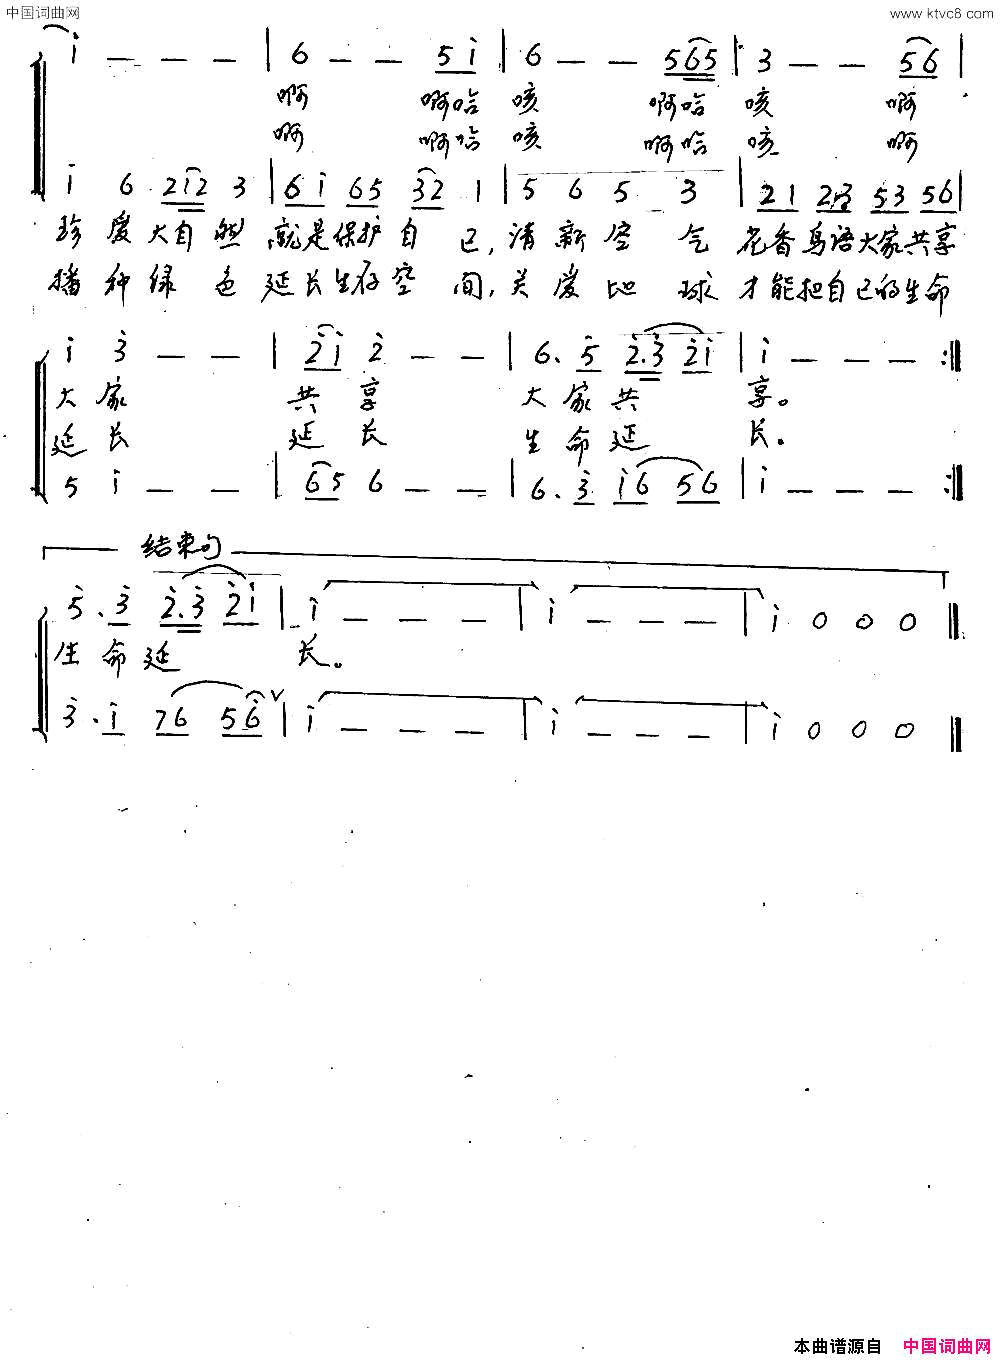 中国词曲网 www.ktvc8.com
i — — — | 6 — — 5 i | 6 — — 5 6 5 | 3 — — 5 6 |
啊 啊哈 咳 啊哈 咳 啊
啊 啊哈 咳 啊哈 咳 啊
i 6 2 i 2 3 | 6 i 6 5 3 2 1 | 5 6 5 3 | 2 1 2 3 5 3 5 6 |
珍爱大自然 就是保护自己,清新空气 花香鸟语大家共享
播种绿色 延长生存空间,关爱地球 才能把自己的生命
i 3 — — | 2 i 2 — — | 6. 5 2. 3 2 i | i — — — :||
大家 共享 大家共 享。
延长 延长 生命延 长。
5 i — — | 6 5 6 — — | 6. 3 i 6 5 6 | i — — — :||
结束句
5. 3 2. 3 2 i | i — — — | i — — — | i 0 0 0 ||
生命延 长。
3. i 7 6 5 6 ∨ | i — — — | i — — — | i 0 0 0 ||
本曲谱源自 中国词曲网